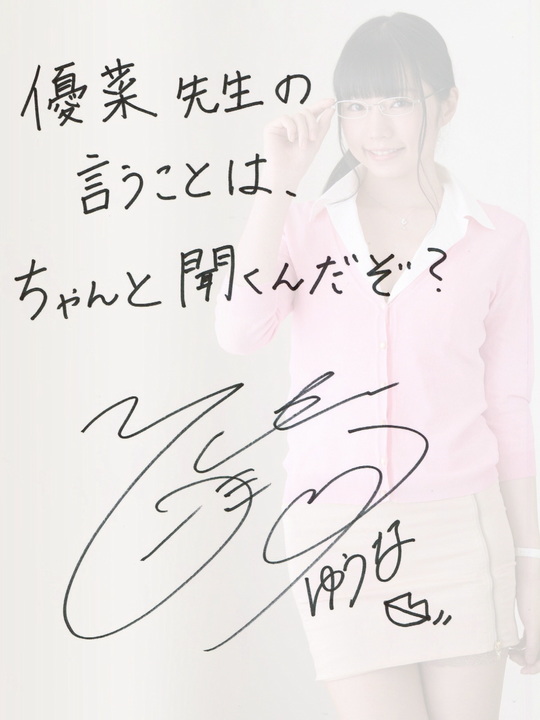 優菜先生の
言うことは、
ちゃんと聞くんだぞ?
ゆうな